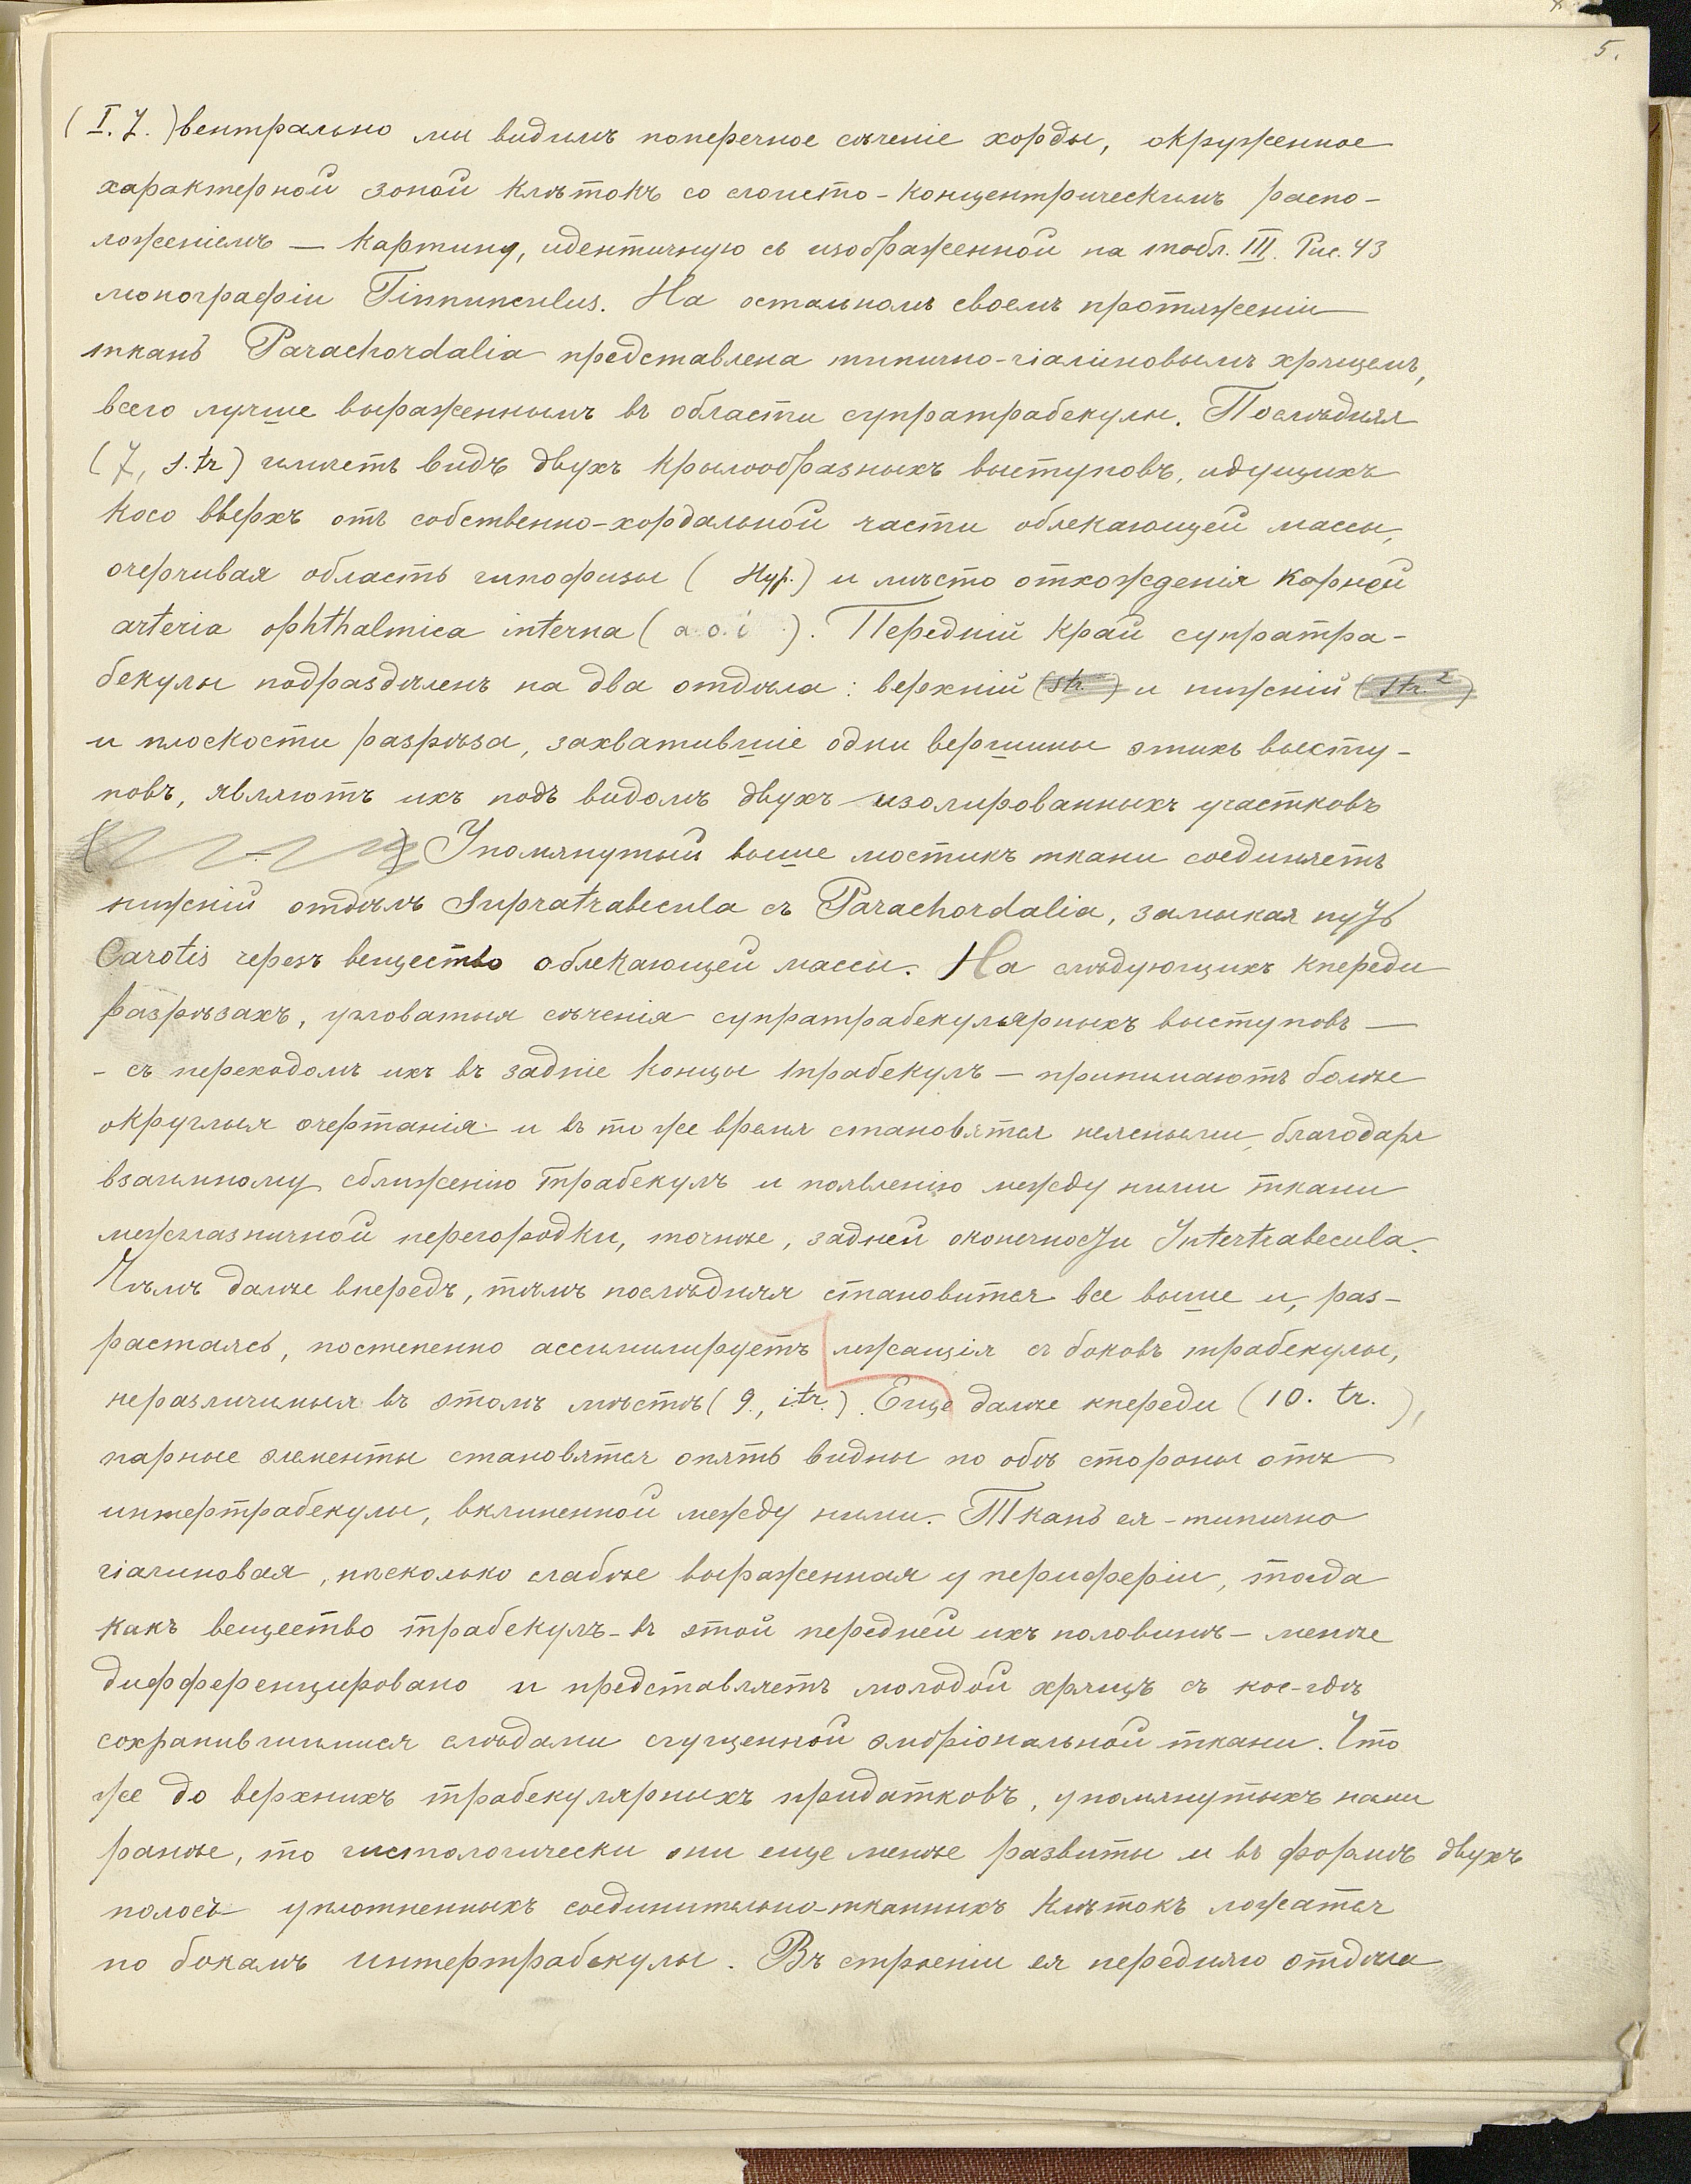 5.
( I. 7. ) вентрально мы видимъ поперечное сѣченіе хорды, окруженное
характерной зоной клѣтокъ со слоисто-концентрическимъ распо-
ложеніемъ — картину, идентичную съ изображенной на табл. III. Рис. 43
монографіи Tinnunculus. На остальномъ своемъ протяженіи
ткань Parachordalia представлена типично-гіалиновымъ хрящемъ,
всего лучше выраженнымъ въ области супратрабекулы. Послѣдняя
(7, s.tr) имѣетъ видъ двухъ крылообразныхъ выступовъ, идущихъ
косо вверхъ отъ собственно-хордальной части облекающей массы,
очерчивая область гипофизы ( Hyp.) и мѣсто отхожденія парной
arteria ophthalmica interna ( a.o.i ). Передній край супратра-
бекулы подраздѣленъ на два отдѣла: верхній (str) и нижній (str.2)
и плоскости разрѣза, захватившіе одни вершины этихъ высту-
повъ, являютъ ихъ подъ видомъ двухъ изолированныхъ участковъ
( — ) Упомянутый выше мостикъ ткани соединяетъ
нижній отдѣлъ Supratrabecula съ Parachordalia, замыкая путь
Carotis черезъ вещество облекающей массы. На слѣдующихъ кпереди
разрѣзахъ, угловатыя сѣченія супратрабекулярныхъ выступовъ —
- съ переходомъ ихъ въ задніе концы трабекулъ — принимаютъ болѣе
округлыя очертанія и въ то же время становятся неясными, благодаря
взаимному сближенію трабекулъ и появленію между ними ткани
межглазничной перегородки, точнѣе, задней оконечности Intertrabecula.
Чѣмъ далѣе впередъ, тѣмъ послѣдняя становится все выше и, раз-
растаясь, постепенно ассимилируетъ лежащія съ боковъ трабекулы,
неразличимыя въ этомъ мѣстѣ ( 9., itr.). Еще далѣе кпереди ( 10. tr. ),
парные элементы становятся опять видны по обѣ стороны отъ
интертрабекулы, вклиненной между ними. Ткань ея - типично
гіалиновая, нѣсколько слабѣе выраженная у периферіи, тогда
какъ вещество трабекулъ - въ этой передней ихъ половинѣ — менѣе
дифференцировано и представляетъ молодой хрящъ съ кое-гдѣ
сохранившимися слѣдами сгущенной эмбріональной ткани. Что
же до верхнихъ трабекулярныхъ придатковъ, упомянутыхъ нами
ранѣе, то гистологически они еще менѣе развиты и въ формѣ двухъ
полосъ уплотненныхъ соединительно-тканныхъ клѣтокъ лежатъ
по бокамъ интертрабекулы. Въ строеніи ея передняго отдѣла